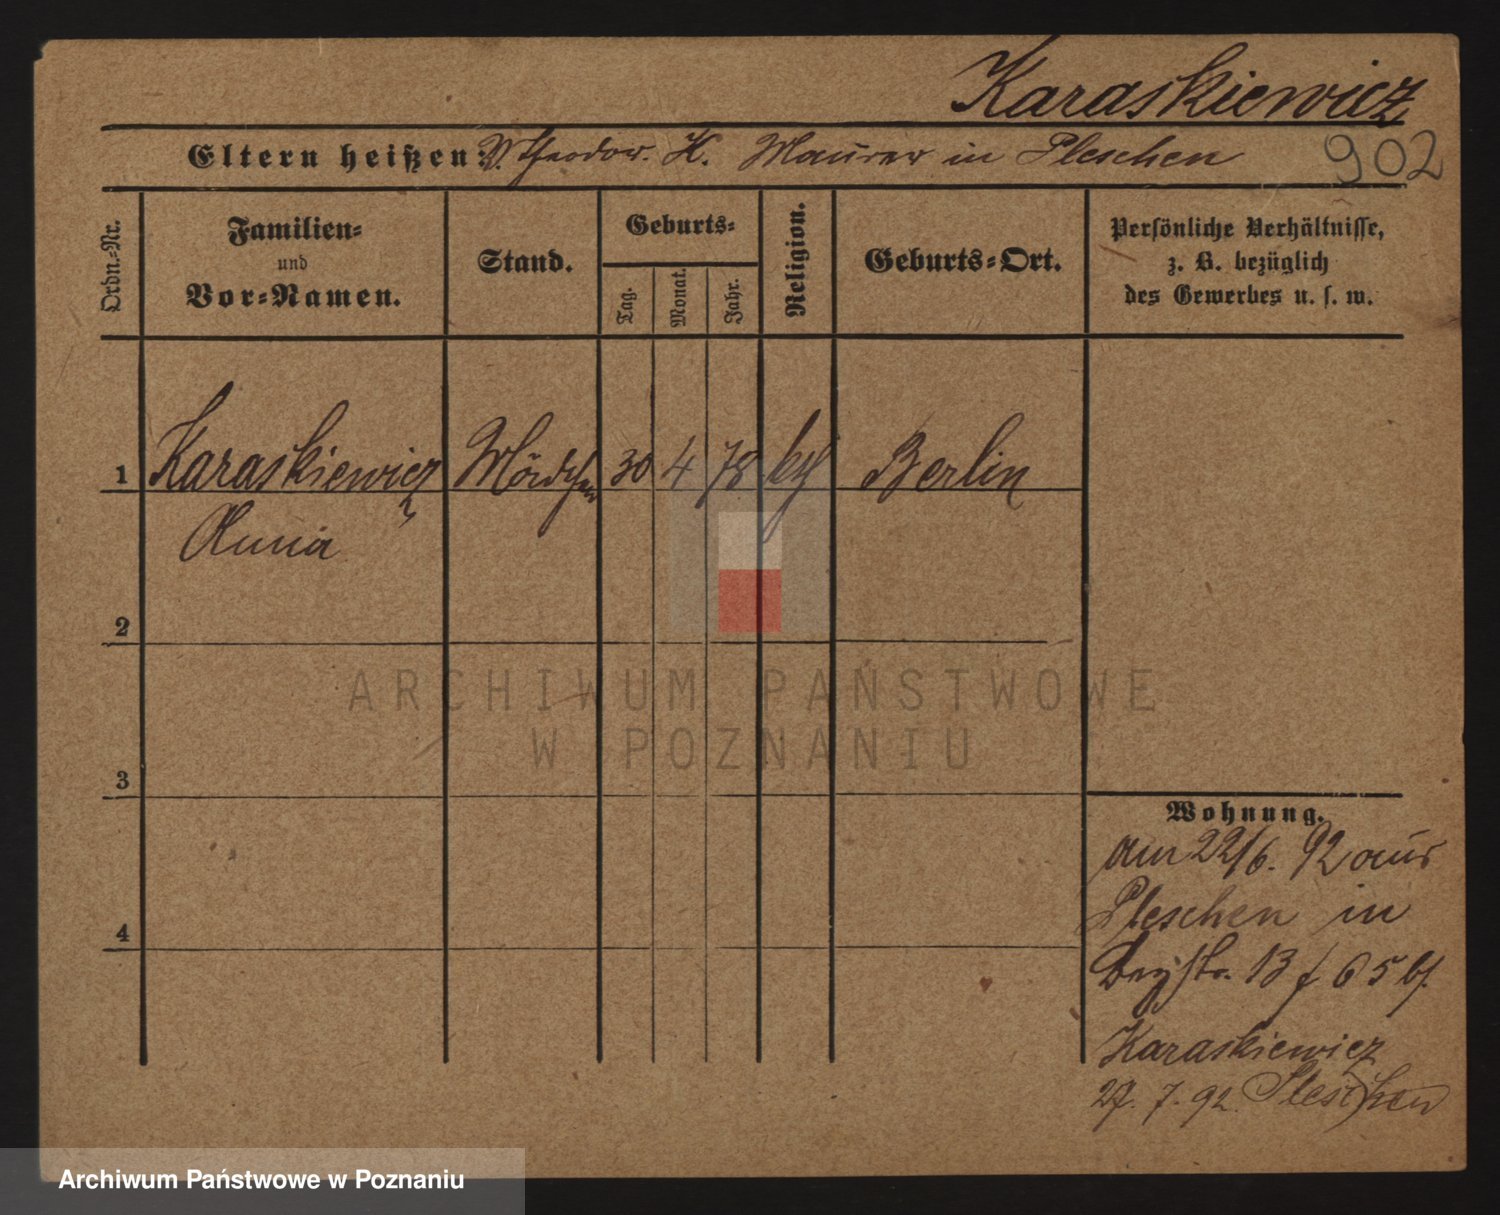 Karaskiewicz
Eltern heißen: V. Theodor. K. Maurer in Pleschen
902
Ordn.-Nr.
Familien-
und
Vor-Namen.
Stand.
Geburts-
Tag.
Monat.
Jahr.
Religion.
Geburts-Ort.
Persönliche Verhältnisse,
z. B. bezüglich
des Gewerbes u. s. w.
1 Karaskiewicz Mädchen 30 4 78 kth Berlin
Anna
2
3
4
ARCHIWUM PAŃSTWOWE
W POZNANIU
Wohnung.
am 22/6. 92 aus
Pleschen in
13 65 bei
Karaskiewicz
27. 7. 92. Pleschen
Archiwum Państwowe w Poznaniu